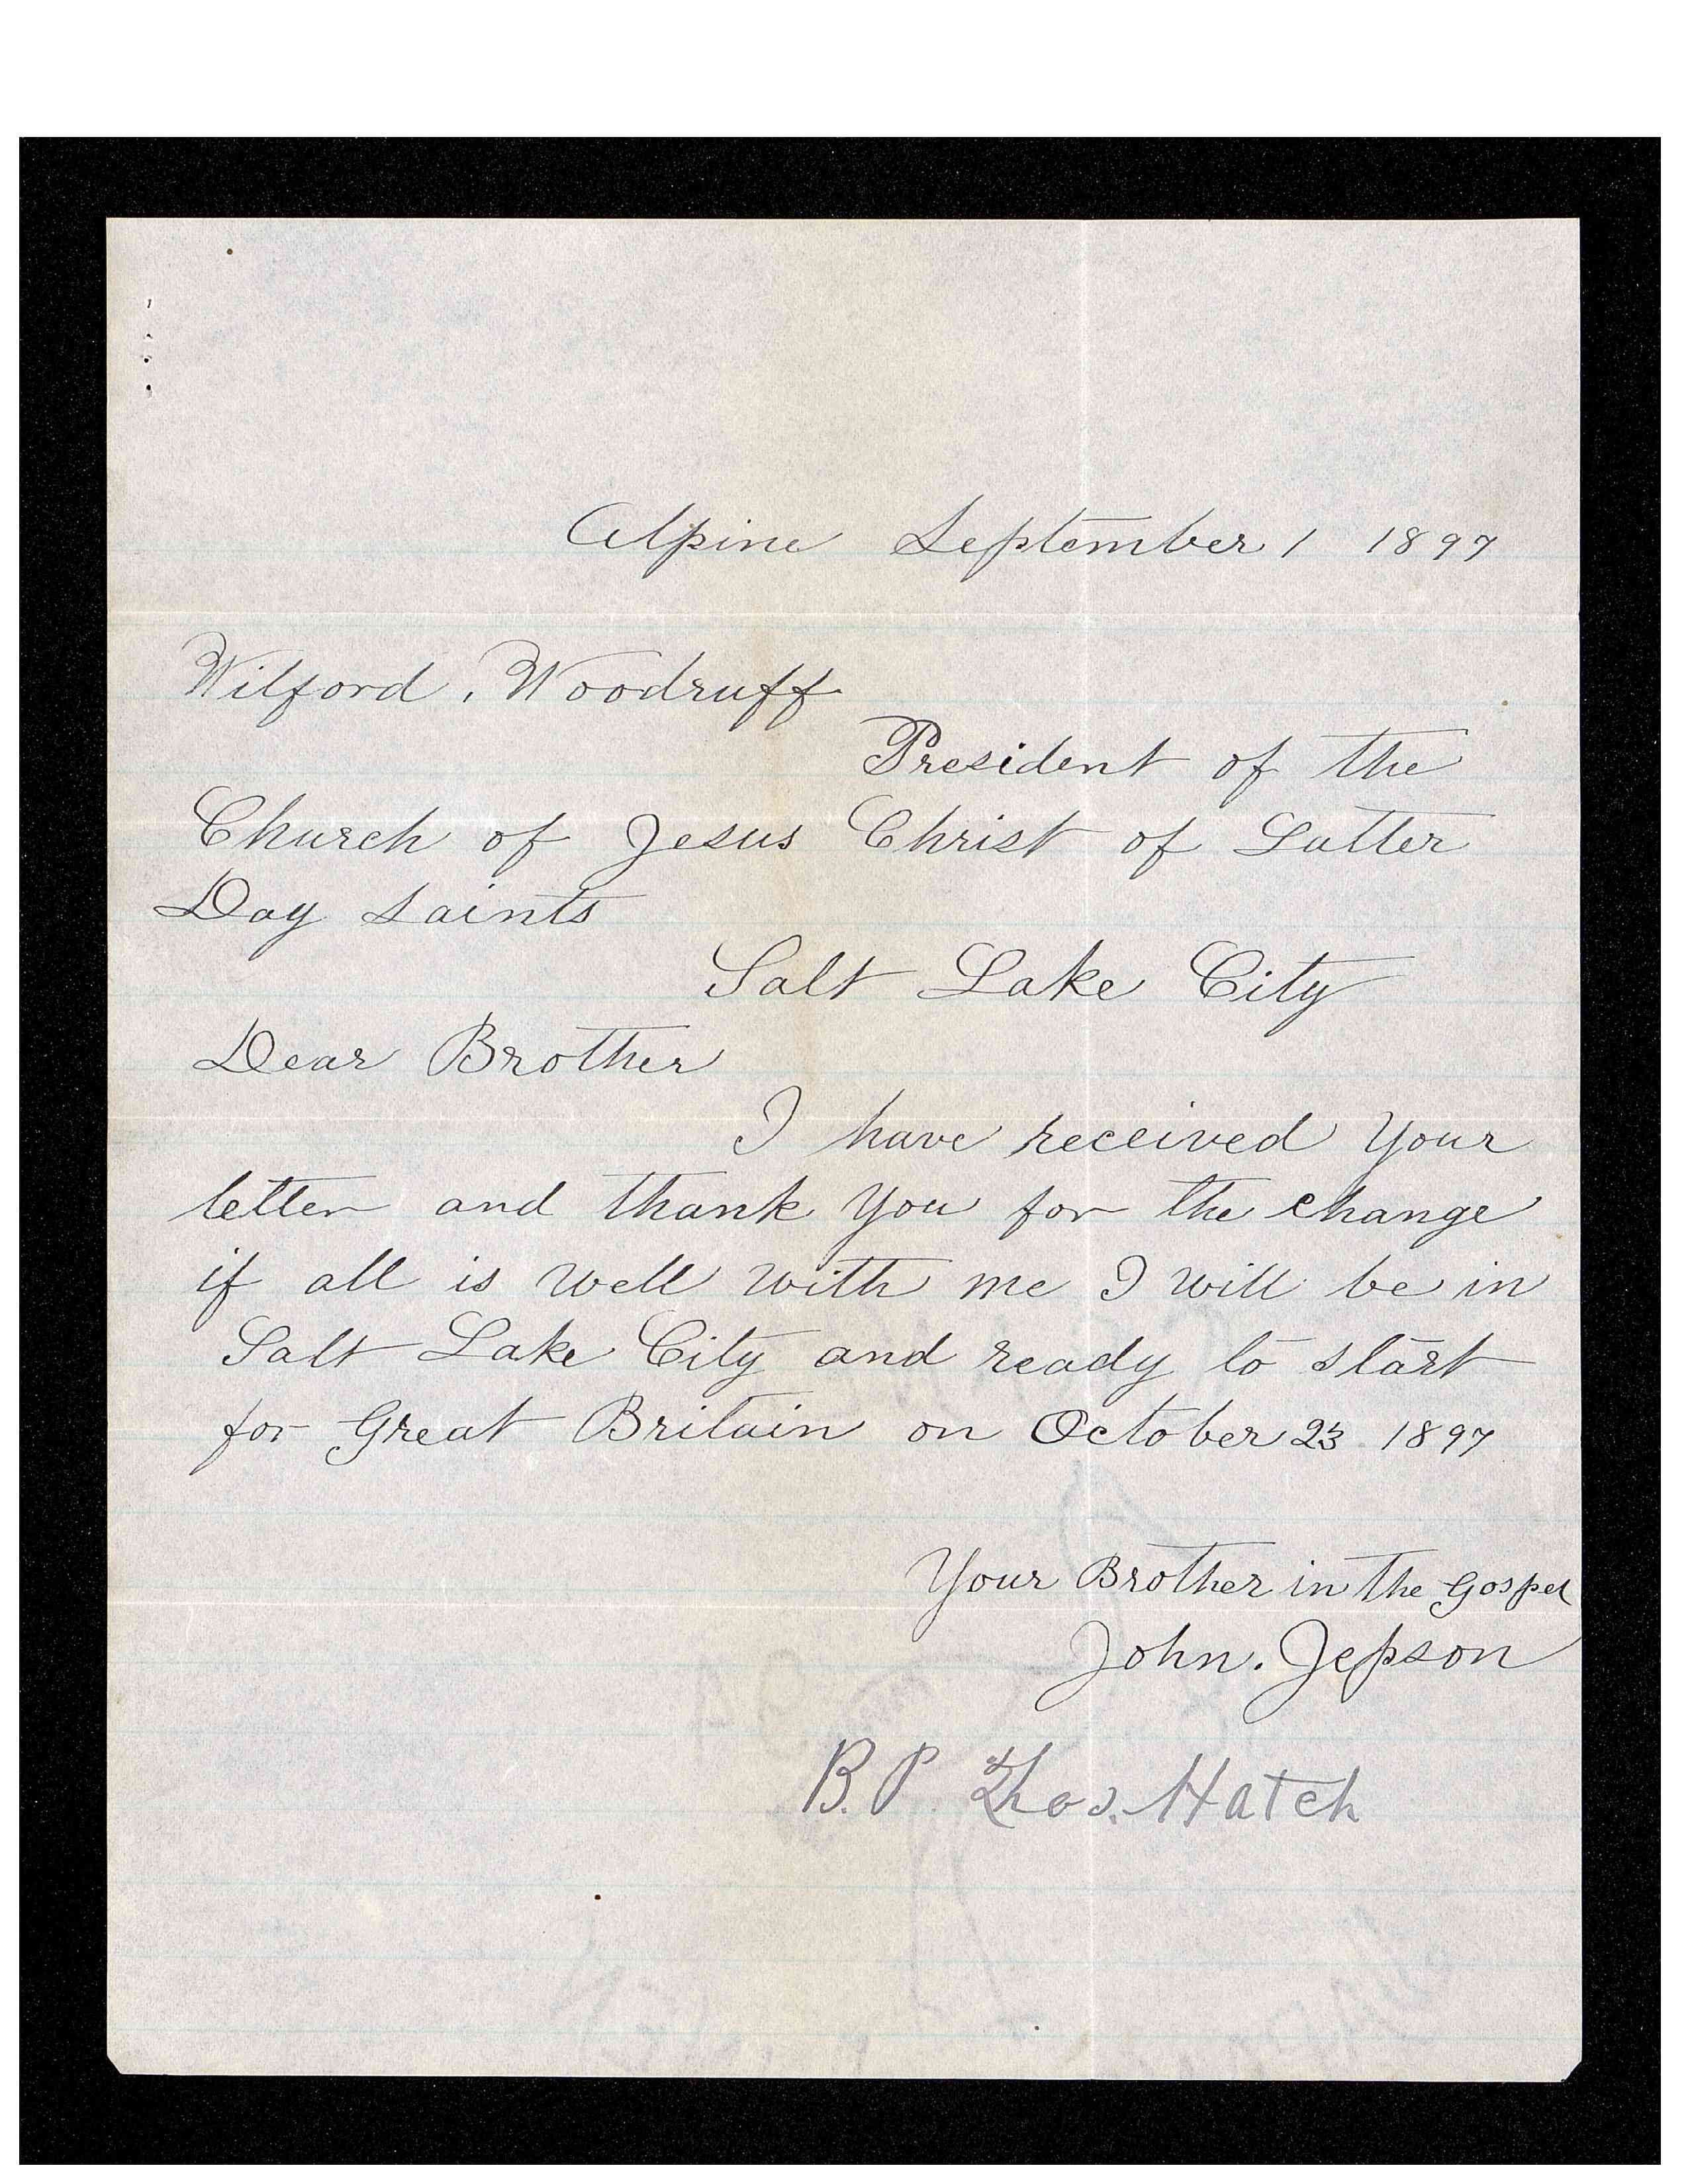 Alpine September 1 1897
Wilford. Woodruff
President of the
Church of Jesus Christ of Latter
Day Saints
Salt Lake City
Dear Brother
I have received your
letter and thank you for the change
if all is well with me I will be in
Salt Lake City and ready to start
for Great Britain on October 23 1897
Your Brother in the Gospel
John. Jepson
B.P. Thos. Hatch